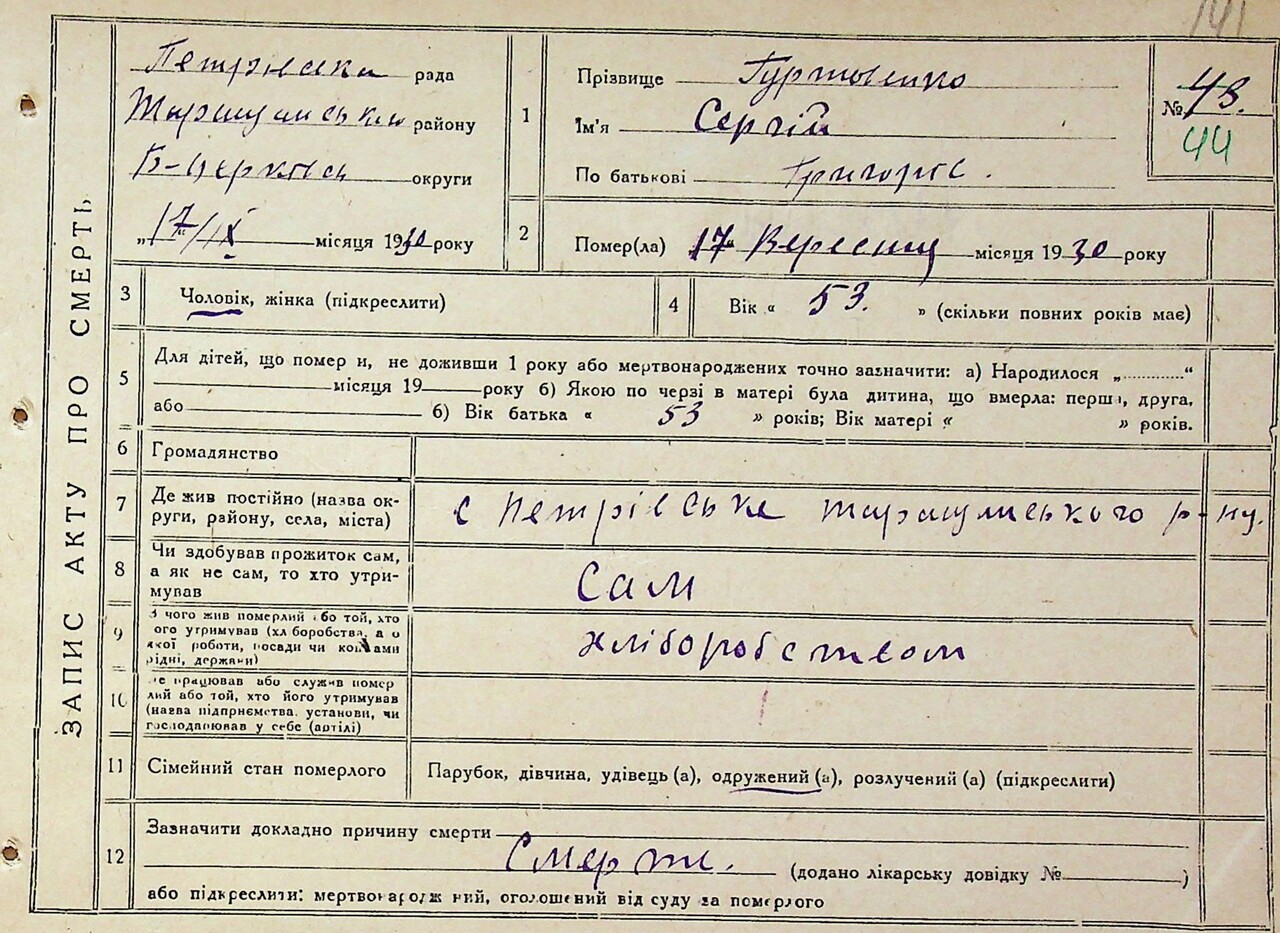 141
ЗАПИС АКТУ ПРО СМЕРТЬ
Петрівська рада
Таращанського району
Б-Церківсь округи
„17/ІХ місяця 1930 року
1
Прізвище
Ім'я Сергій
По батькові Григоріє.
№ 43.
44
2
Помер(ла) 17 Вересня місяця 1930 року
3
Чоловік, жінка (підкреслити)
4
Вік « 53. » (скільки повних років має)
5
Для дітей, що помер и, не доживши 1 року або мертвонароджених точно зазначити: а) Народилося „............“
місяця 19 року б) Якою по черзі в матері була дитина, що вмерла: перша, друга,
або б) Вік батька « 53 » років; Вік матері « » років.
6
Громадянство
7
Де жив постійно (назва ок-
руги, району, села, міста)
с Петрівське Таращанського р-ну.
8
Чи здобував прожиток сам,
а як не сам, то хто утри-
мував
Сам
9
З чого жив померлий або той, хто
ого утримував (хл боробства, а о
якої роботи, посади чи коштами
рідні, держави)
хліборобством
10
е працював або служив помер
лий або той, хто його утримував
(назва підприємства, установи, чи
господарював у себе (артілі)
11
Сімейний стан померлого
Парубок, дівчина, удівець (а), одружений (а), розлучений (а) (підкреслити)
12
Зазначити докладно причину смерти
(додано лікарську довідку № )
або підкреслити: мертвонародж ний, оголошений від суду за померлого